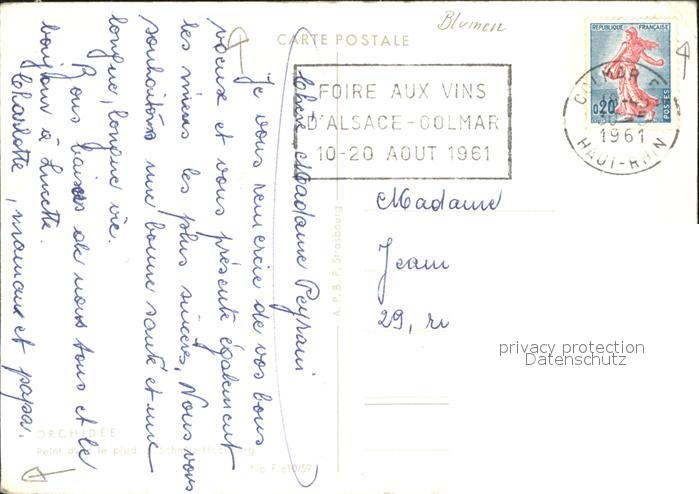 Blumen
CARTE POSTALE
RÉPUBLIQUE FRANÇAISE
0,20
POSTES
COLMAR
1961
HAUT-RHIN
FOIRE AUX VINS
D'ALSACE-COLMAR
10-20 AOUT 1961
Chère Madame Peyrani
Je vous remercie de vos bons
voeux et vous présente également
les miens les plus sincères. Nous vous
souhaitons une bonne santé et une
longue, longue vie.
Bons baisers de nous tous et le
bonjour à Lucette.
Charlotte, maman et papa.
Madame
Jean
29, ru
privacy protection
Datenschutz
A.P.B.P. Strasbourg
ORCHIDÉE
Peint avec le pied
No F 610/59